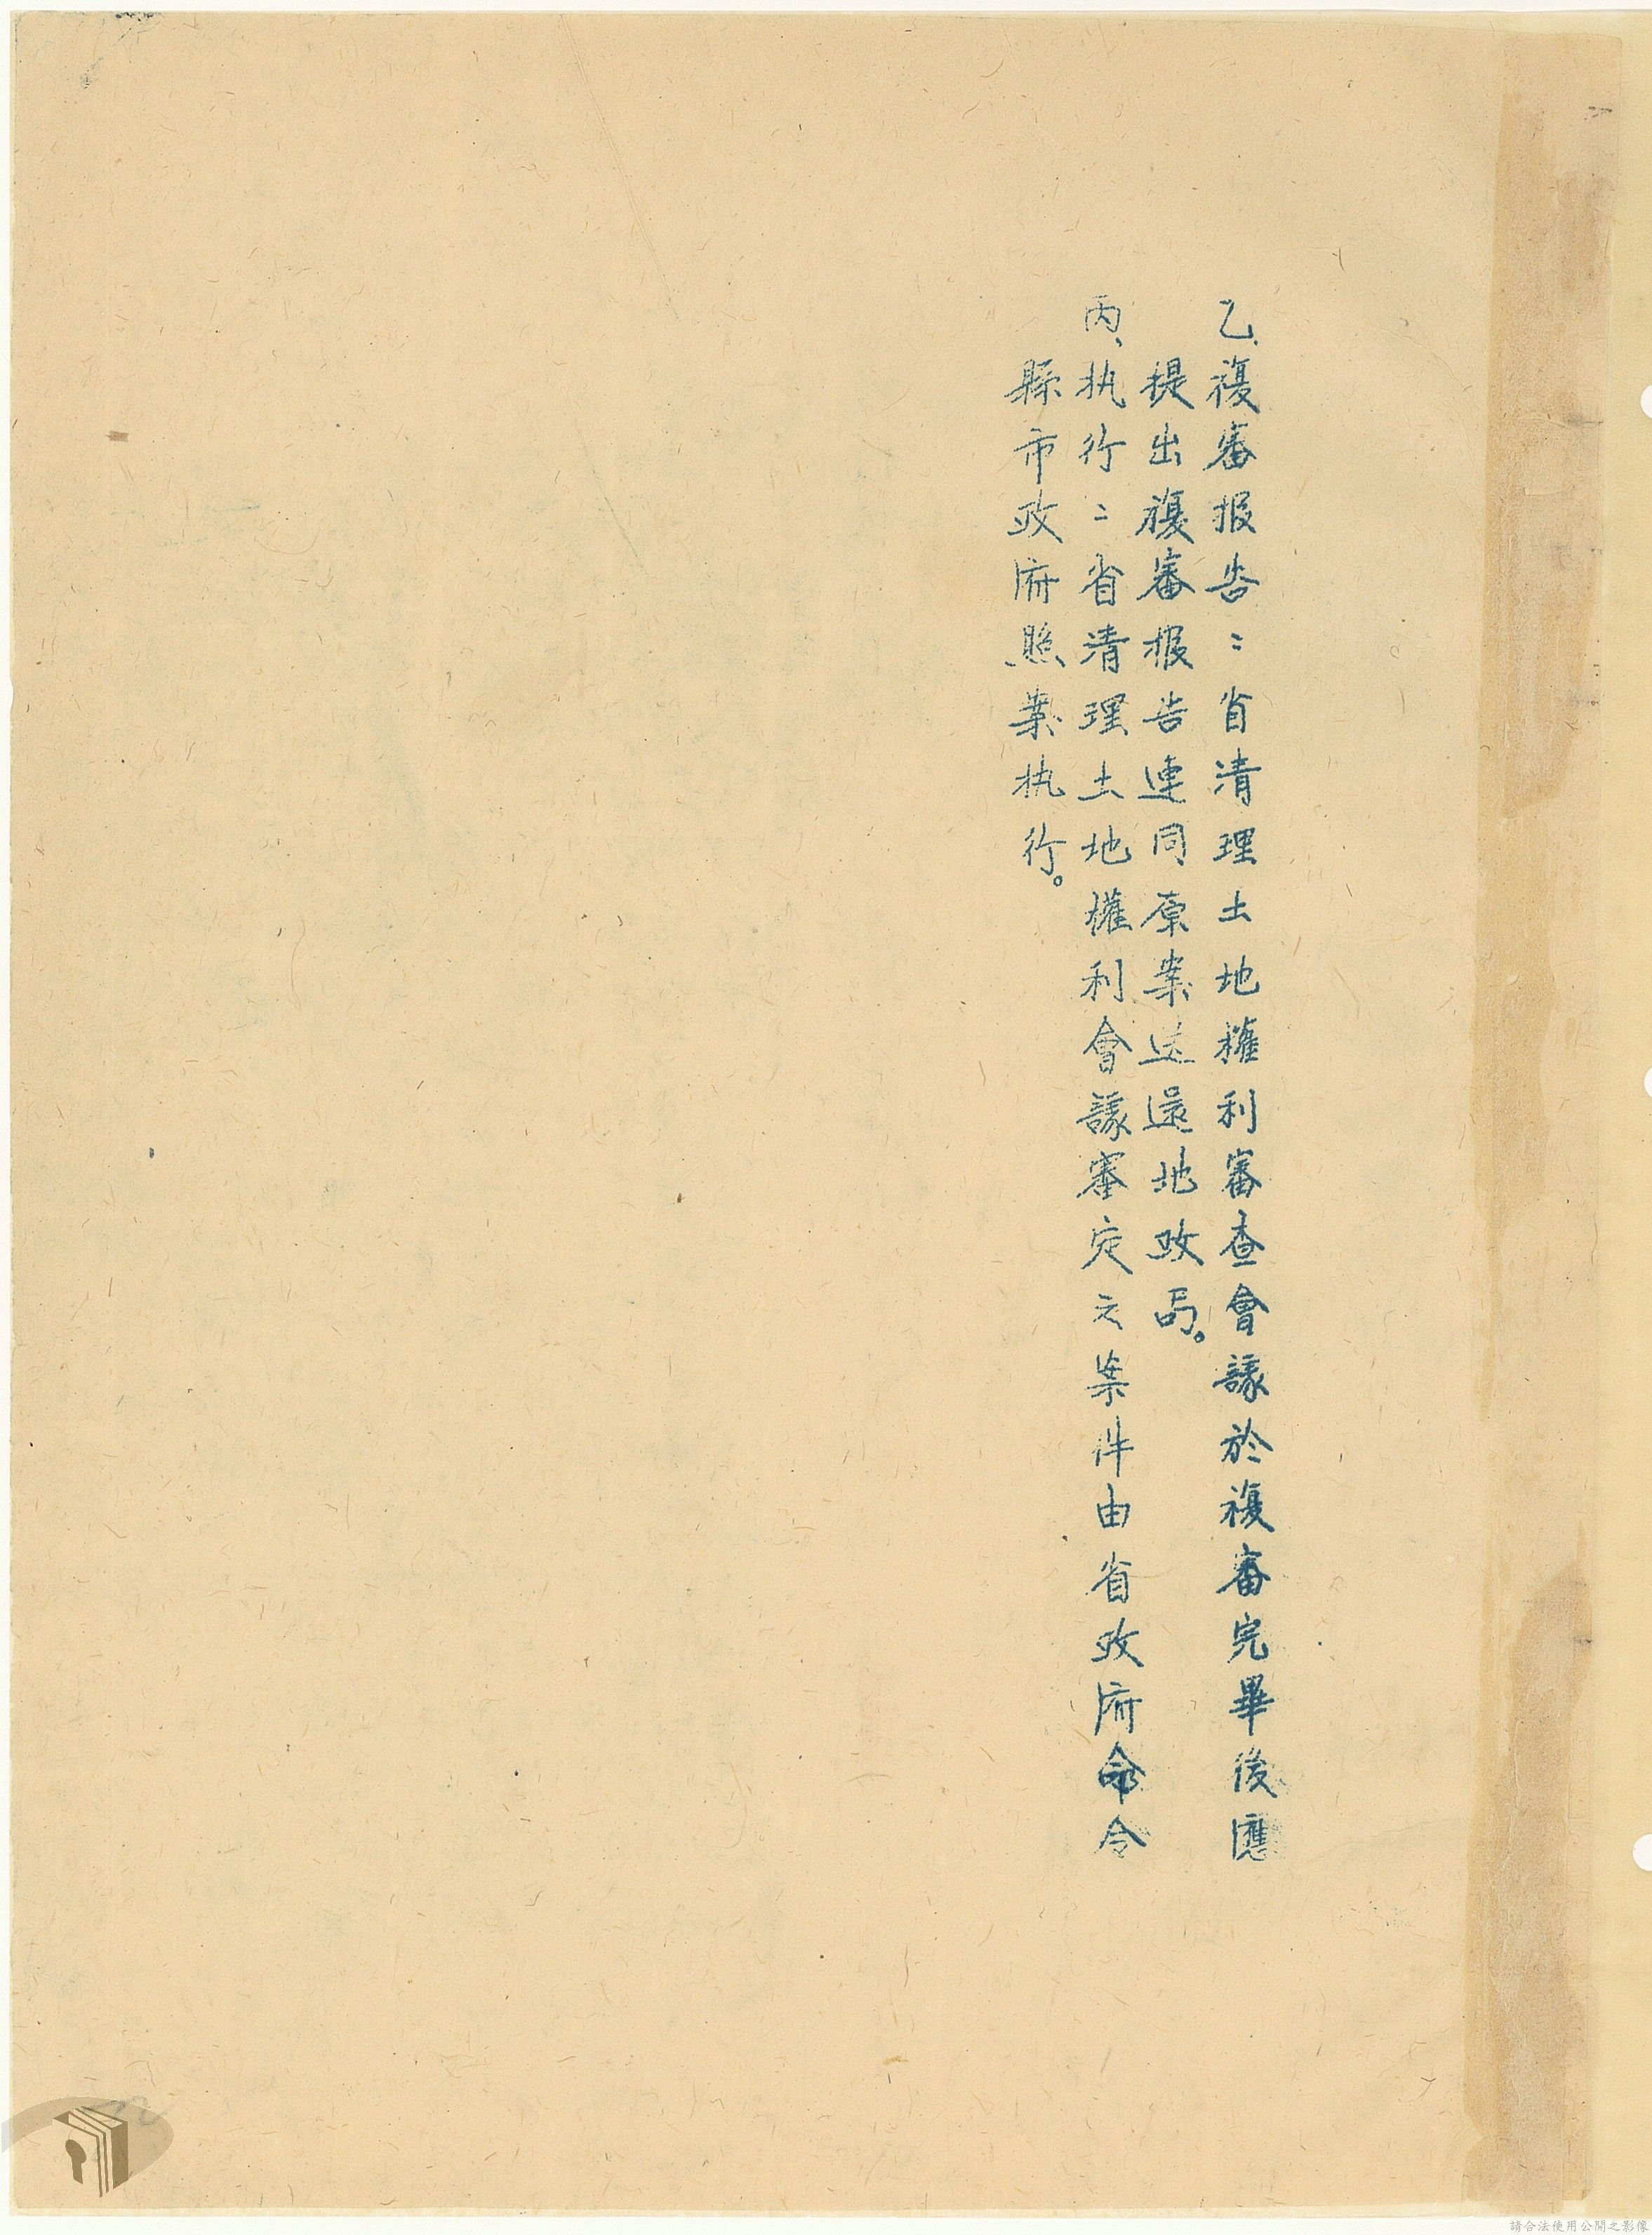 乙、複審报告：省清理土地權利審查會議於複審完畢後應
提出複審报告連同原案送還地政局。
丙、执行：省清理土地權利會議審定之案件由省政府命令
縣市政府照案执行。
請合法使用公開之影像